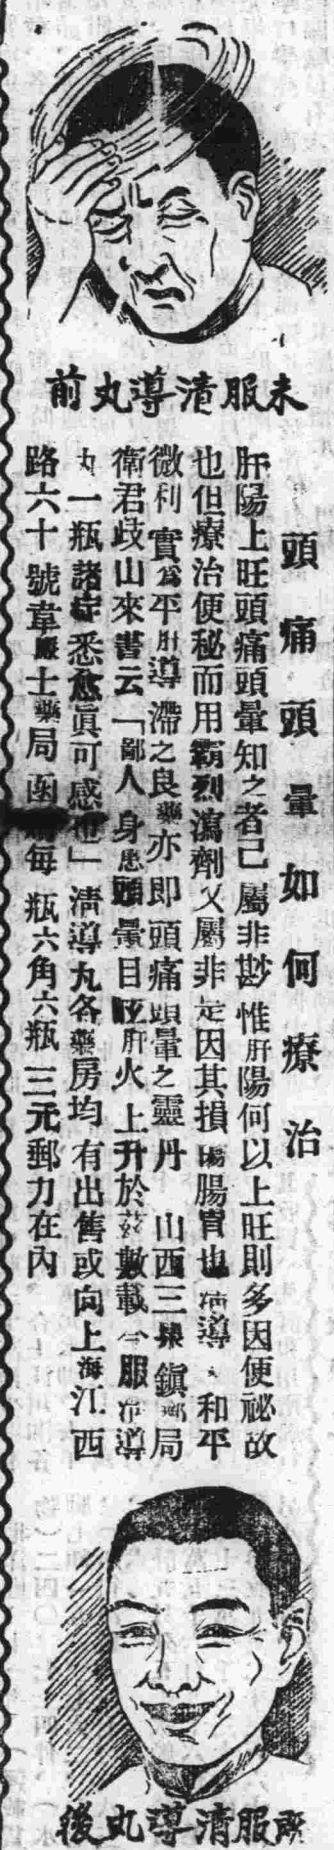 未服清導丸前
頭痛頭暈如何療治
肝陽上旺頭痛頭暈知之者已屬非尠惟肝陽何以上旺則多因便祕故
也但療治便秘而用霸烈瀉劑又屬非是因其損傷腸胃也清導丸和平
微利實為平肝導滯之良藥亦即頭痛頭暈之靈丹 山西三 鎮郵局
衛君歧山來書云「鄙人身患頭暈目眩肝火上升於茲數載今服清導
丸一瓶諸症悉愈眞可感也」清導丸各藥房均有出售或向上海江西
路六十號韋廉士藥局函購每瓶六角六瓶三元郵力在內
既服清導丸後